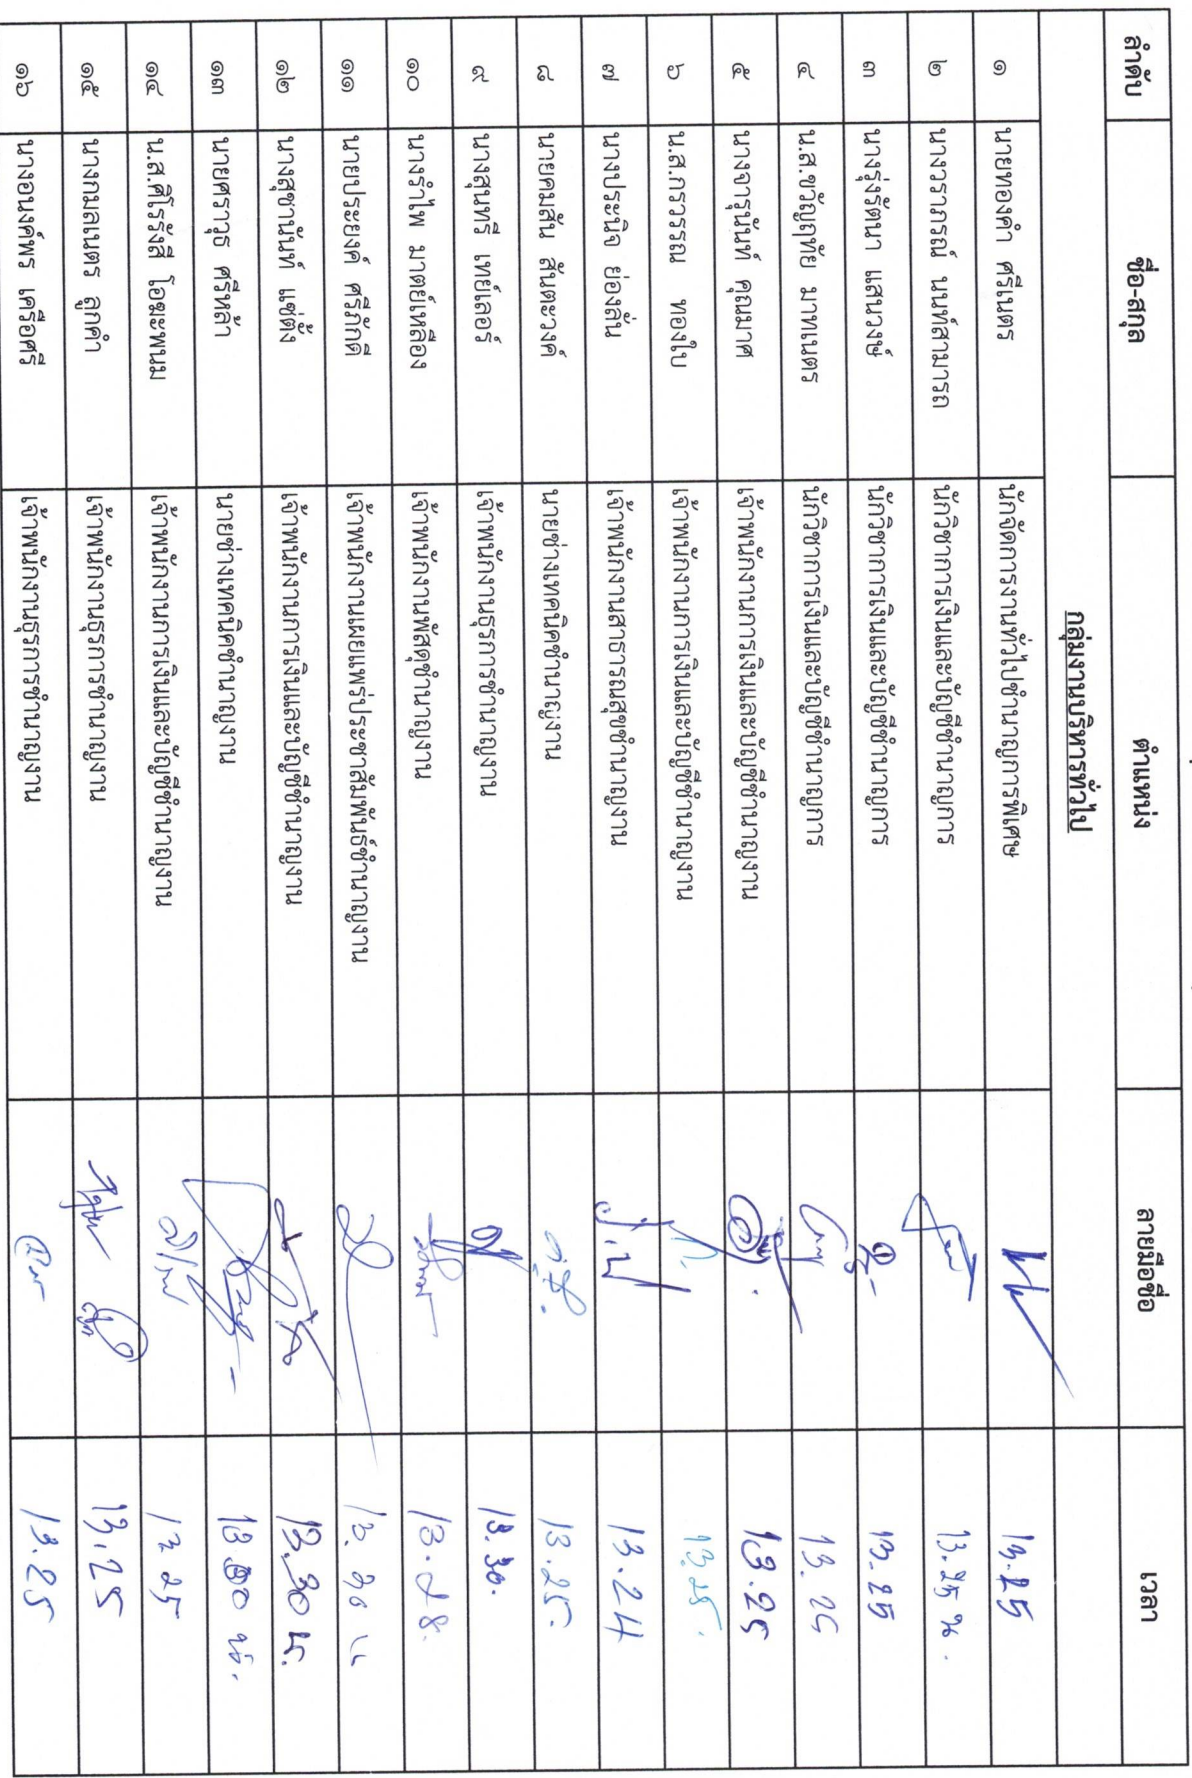 ลำดับ ชื่อ-สกุล ตำแหน่ง ลายมือชื่อ เวลา
กลุ่มงานบริหารทั่วไป
๑ นายทองคำ ศรีเนตร นักจัดการงานทั่วไปชำนาญการพิเศษ 13.25
๒ นางวราภรณ์ นนท์สามารถ นักวิชาการเงินและบัญชีชำนาญการ 13.25 น.
๓ นางรุ่งรัตนา แสนวงษ์ นักวิชาการเงินและบัญชีชำนาญการ 13.25
๔ น.ส.ขวัญฤทัย มาทเนตร นักวิชาการเงินและบัญชีชำนาญการ 13.25
๕ นางจารุนันท์ คุณมาศ เจ้าพนักงานการเงินและบัญชีชำนาญงาน 13.25
๖ น.ส.กรวรรณ ทองใบ เจ้าพนักงานการเงินและบัญชีชำนาญงาน 13.25.
๗ นางประนิจ ย่องลั่น เจ้าพนักงานสาธารณสุขชำนาญงาน 13.24
๘ นายคมสัน สันตะวงศ์ นายช่างเทคนิคชำนาญงาน 13.25.
๙ นางสุนทรี เทย์เลอร์ เจ้าพนักงานธุรการชำนาญงาน 13.30.
๑๐ นางรำไพ มาตย์เหลือง เจ้าพนักงานพัสดุชำนาญงาน
๑๑ นายประยงค์ ศรีภักดี เจ้าพนักงานเผยแพร่ประชาสัมพันธ์ชำนาญงาน 13.30 น
๑๒ นางสุชานันท์ แซ่ตั้ง เจ้าพนักงานการเงินและบัญชีชำนาญงาน 13.30 น.
๑๓ นายศราวุธ ศรีหล้า นายช่างเทคนิคชำนาญงาน
๑๔ น.ส.ศิโรรังสี โอฆะพนม เจ้าพนักงานการเงินและบัญชีชำนาญงาน 13 25
๑๕ นางกมลเนตร ลูกคำ เจ้าพนักงานธุรการชำนาญงาน 13.25
๑๖ นางอนงค์พร เครือศรี เจ้าพนักงานธุรการชำนาญงาน 13.25